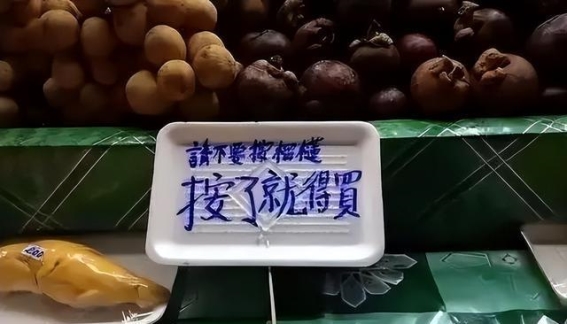 請不要按榴槤
按了就得買